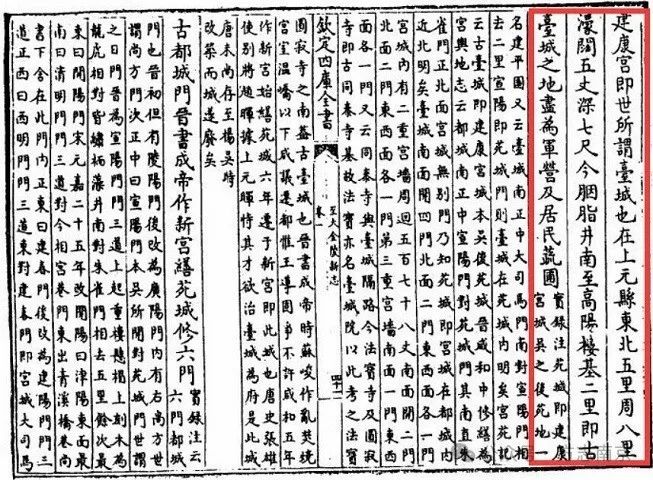 建康宮即世所謂臺城也在上元縣東北五里周八里
濠闊五丈深七尺今胭脂井南至高陽樓基二里即古
臺城之地盡為軍營及居民蔬圃
實錄注苑城即建康
宮城吳之後苑地一
名建平園又云臺城南正中大司馬門南對宣陽門相
去二里宣陽即苑城門則臺城在苑城內明矣宮苑記
云古臺城即建康宮城本吳後苑城晉咸和中修繕為
宮輿地志云都城南正中宣陽門對苑城門其南直朱
雀門正北面宮城無別門乃知苑城即宮城在都城內
近北明矣臺城南面開四門北面二門東西面各一門
宮城內有二重宮墻周迴五百七十八丈南面開二門
北面二門東西面各一門第三重宮墻南面一門東西
面各一門又云同泰寺與臺城隔路今法寶寺及圓寂
寺即古同泰寺基故法寶亦名臺城院以此考之法寶
欽定四庫全書
至大金陵新志
卷一
圓寂寺之南蓋古臺城也晉書成帝時蘇峻作亂焚燒
宮室溫嶠以下咸議遷都惟王導固爭不許咸和五年
作新宮始繕苑城六年遷于新宮即此城也唐史張雄
使別將趙暉據上元暉恃其才欲治臺城為府是此城
唐末尚存至楊吳時
改築而城遂廢矣
古都城門晉書成帝作新宮繕苑城修六門
實錄注云
六門都城
門也晉初但有陵陽門後改為廣陽門內有右尚方世
謂尚方門次正中曰宣陽門本吳所開對苑城門世謂
之白門晉為宣陽門門三道上起重樓懸楣上刻木為
龍虎相對皆繡栭藻井南對朱雀門相去五里餘次最
東曰開陽門宋元嘉二十五年改開陽曰津陽東面最
南曰清明門門三道對今湘宮巷門東出青溪橋巷尚
書下舍在此門內正東曰建春門後改為建陽門門三
道正西曰西明門門三道東對建春門即宮城大司馬